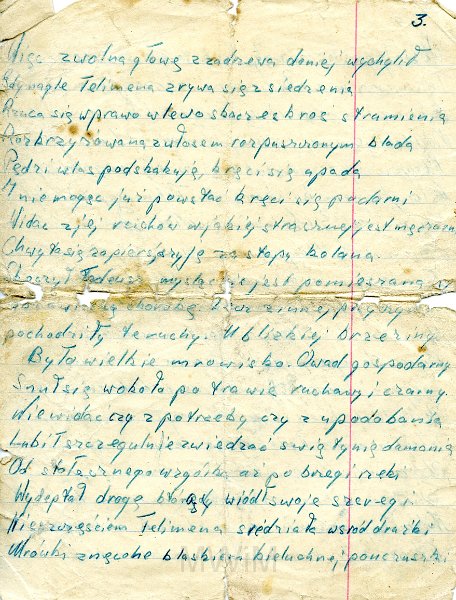 3.
Więc zwolna głowę z zadrzewa daniej wychylił
Gdy nagle Telimena zrywa się z siedzenia
Rzuca się w prawo w lewo skacze skroś strumienia
Rozkrzyżowaną z włosem rozpuszczonym blada
Pędzi w las podskakuję, kręci się upada
I niemogąc już powstać kręci się po darni
Widać z jej ruchów w jakiej strasznej jest męczarni
Chwyta się za pierś szyję za stopy kolana.
Skoczył Tadeusz myśląc że jest pomieszana
chorobę. Lecz z innej przyczyny
pochodziły te ruchy. U blizkiej brzeziny
Było wielkie mrowisko. Owad gospodarny
Snuł się wokoło po trawie ruchawy i czarny
Niewidać czy z potrzeby czy z upodobania
Lubił szczegulnie zwiedzać świątynię dumania
Od stołecznego wzgórka aż po brzegi rzeki
Wydeptał drogę którędy wiódł swoje szeregi
Nieszczęściem Telimena siedziała wsród dróżki
Mrówki znęcone blaskiem bieluchnej pończuszki